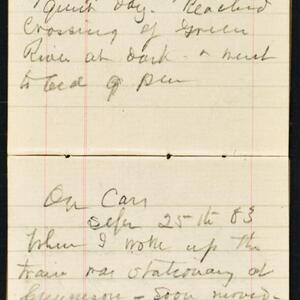 quiet day. Reached
Crossing of Green
River at dark - & went
to bed 9 pm
On Cars
Sefr 25th 83
When I woke up the
train was stationary at
Gunnison - Soon moved